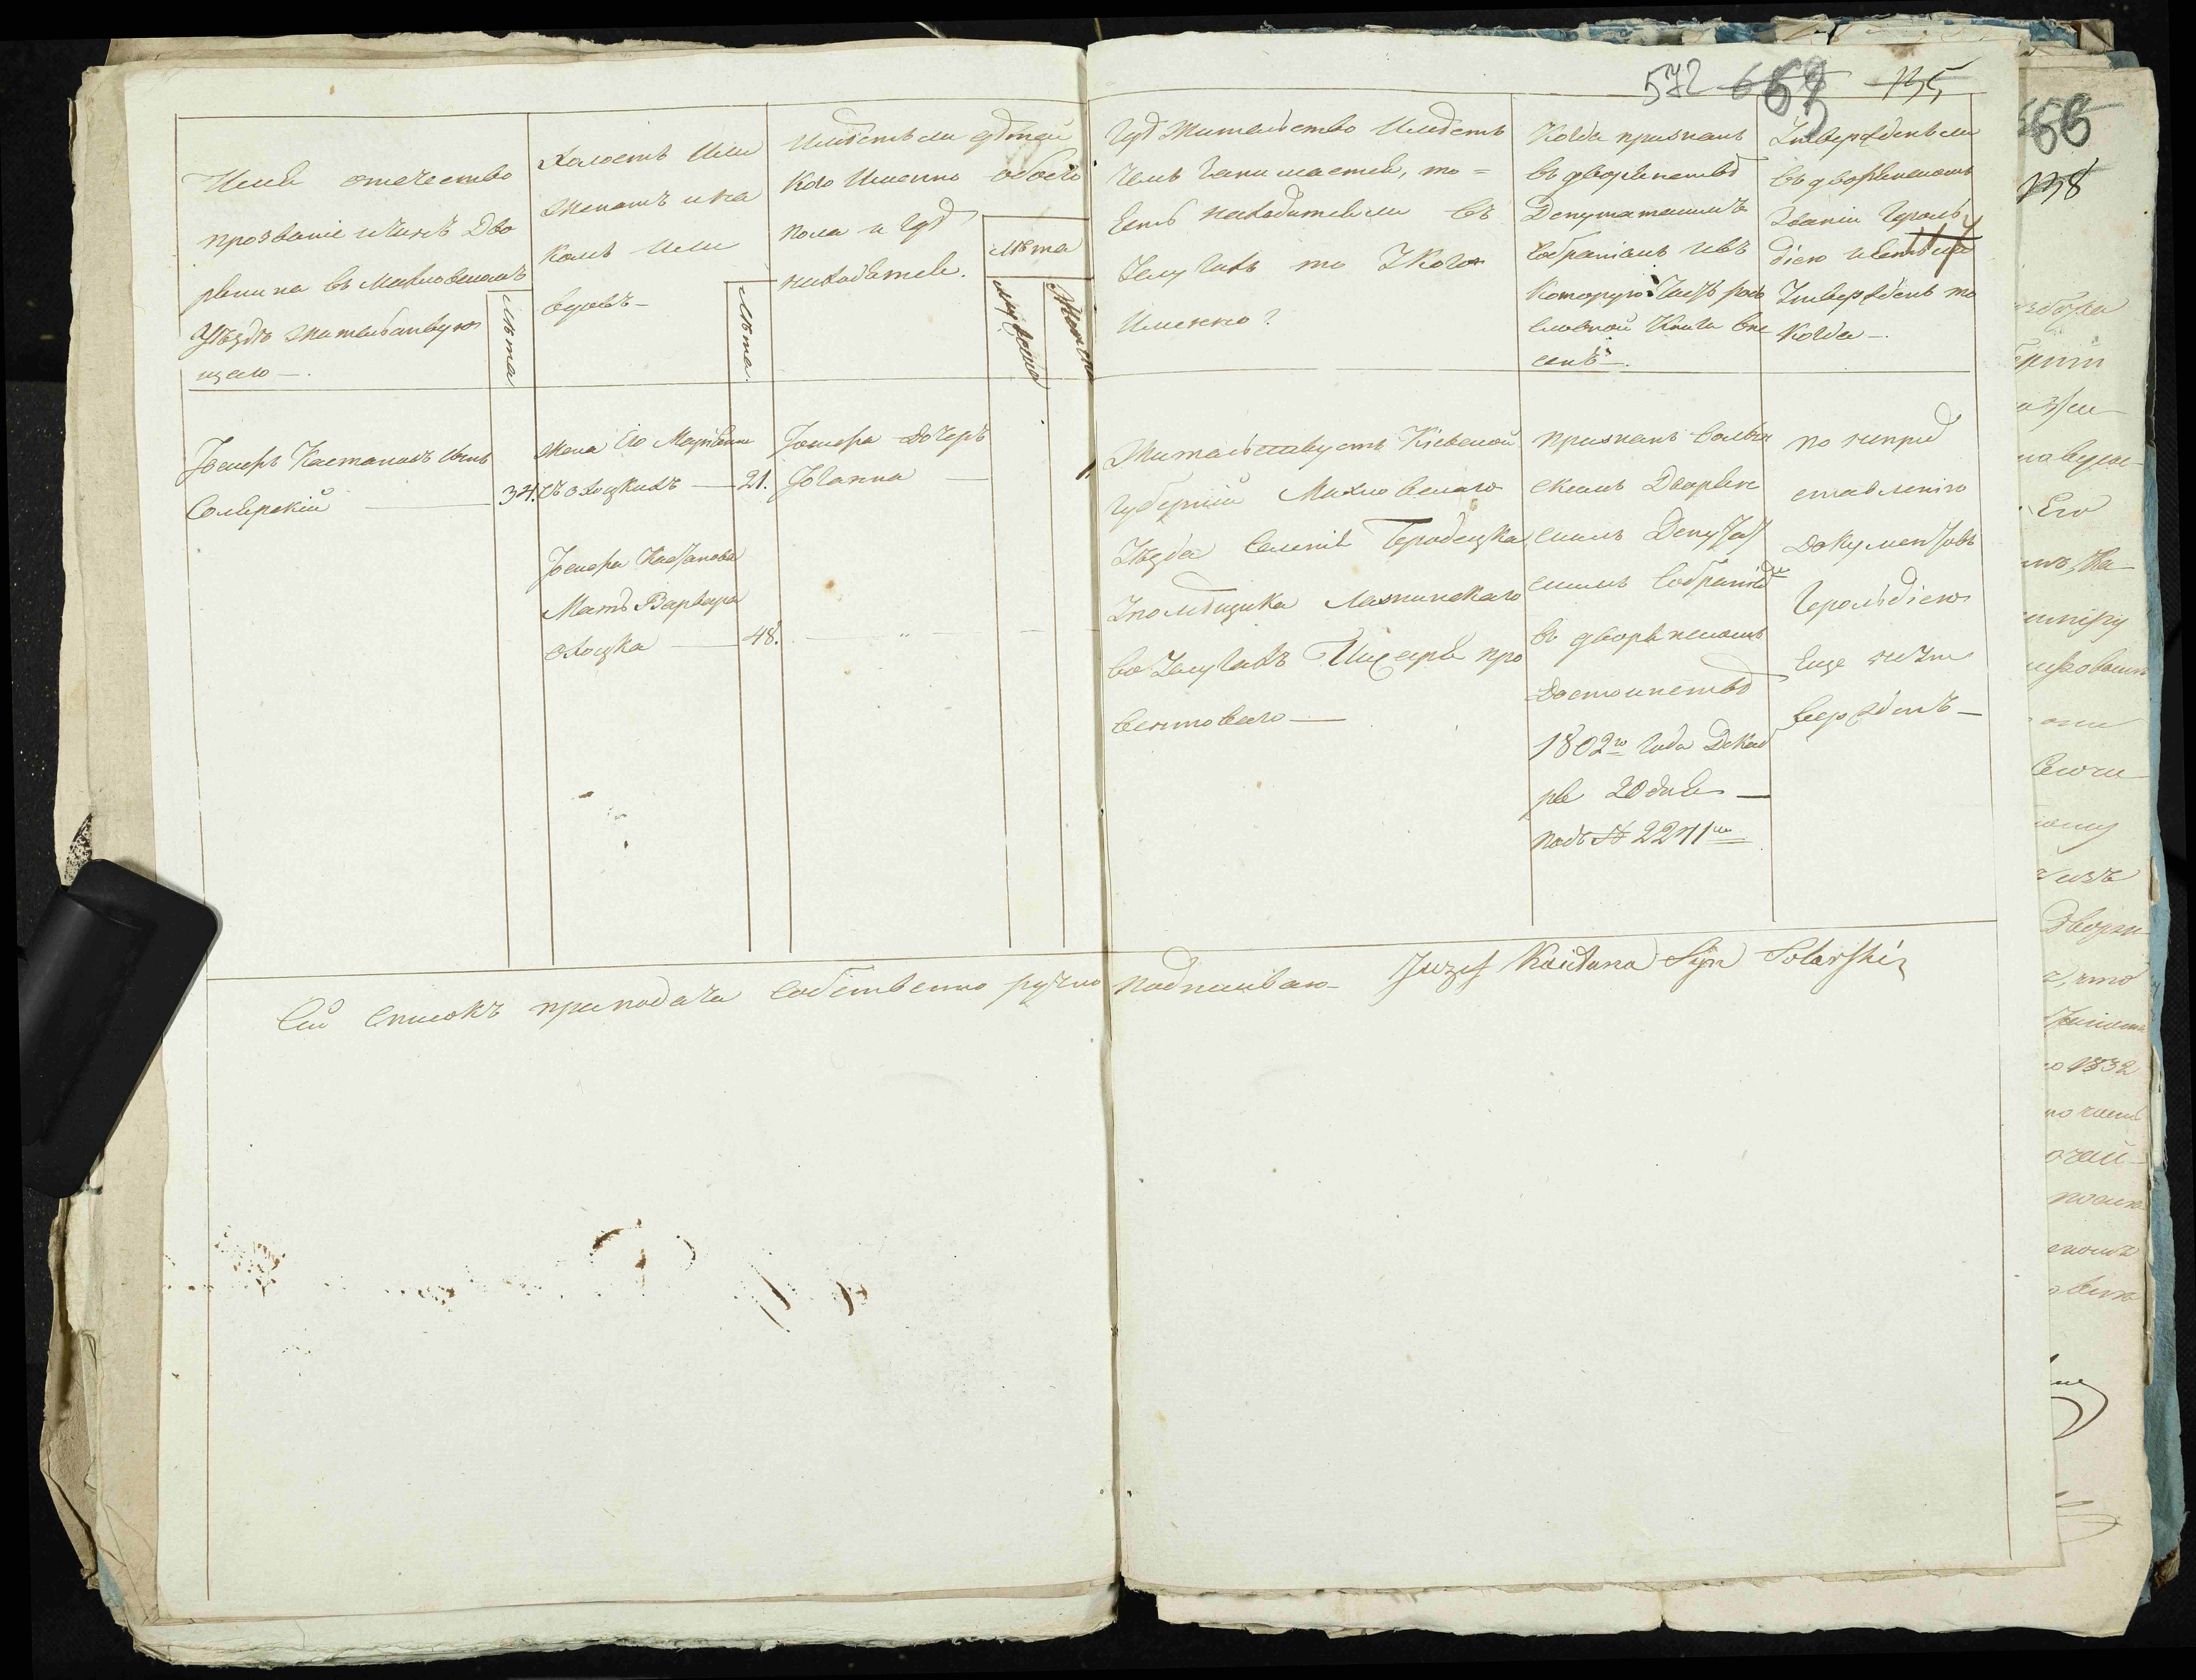 572 135
Имя отечество
прозваніе и чинъ Дво
рянина въ Махновскомъ
Уѣздѣ жительствую
щаго —.
лѣта
Холостъ или
женатъ и на
комъ или
вдовъ —
лѣта.
Имѣетъ ли дѣтей
кого Именно обоего
пола и гдѣ
находятся.
лѣта
мужеска
Женска
Гдѣ Жительство Имѣетъ
чемъ Занимается, то =
Естъ находится ли въ
Услугахъ то у кого
Именно?
Когда признанъ
въ дворянствѣ
Депутатскимъ
Собраніемъ и въ
которую Часть родо
словной Книги вне
сенъ —.
Утвержденъ ли
въ дворянскомъ
Званіи Героль
діею и естьли
Утвержденъ то
когда —.
Іосифъ Каетановъ Сынъ
Солярскій — 34.
Жена Его Маріанна
съ Охоцкихъ — 21.
Іосифа Каетанова
Мать Варвара
Охоцка — 48.
Іосифа Дочерь
Іоганна — 1
Жительствуетъ Кіевской
Губерніи Махновскаго
Уѣзда Селеніи Бродецка
У помѣщика
во Услугахъ Писаря про
вентоваго —
признанъ Волын
скимъ Дворян
скимъ Депутат
скимъ Собраніемъ
въ дворянскомъ
Достоинствѣ
1802го года Декаб
ря 20 дня —
подъ № 2271мъ
по непред
ставленію
Документовъ
Герольдіею
Еще не ут
вержденъ —
Сей Списокъ при подачи собственно ручно подписываю Juzef Kaietana Syn Solarski
656
138
Его
1832